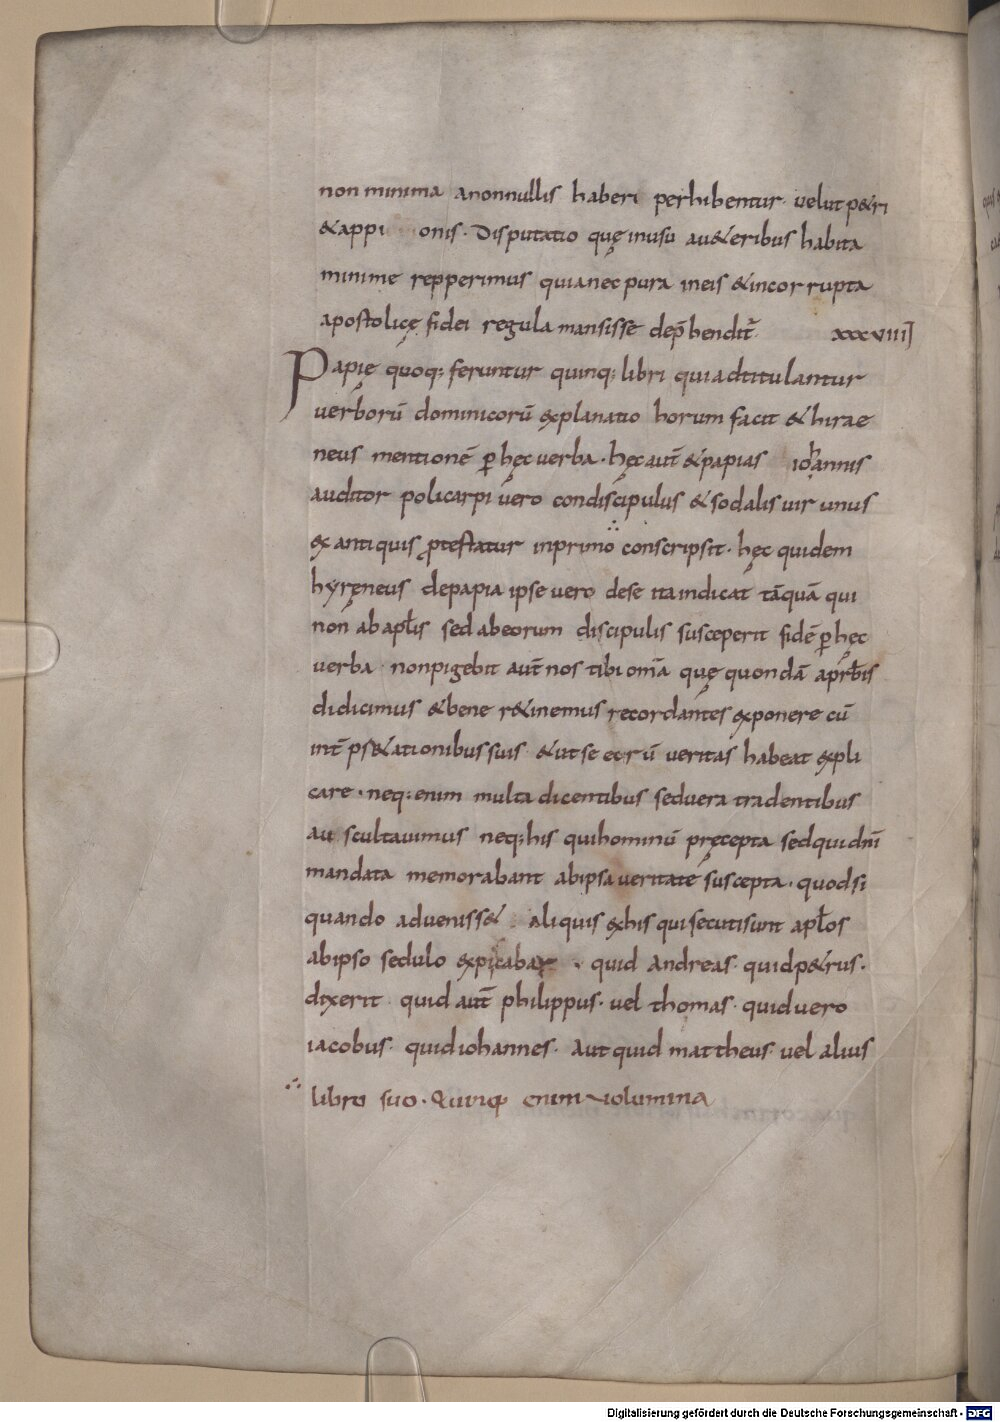 non minima anonnullis haberi perhibentur· velut p&ri
&appi onis· Disputatio quę inusu au&eribus habita
minime repperimus quianec pura ineis &incorrupta
apostolicę fidei regula mansisse dep̄hendit̄· xxxviii]
Papię quoq; feruntur quinq; libri qui adtitulantur
verborū dominicorū explanatio horum facit &hirae
neus mentionē ꝑ hęc verba· hęc aut̄ &papias ioħannis
auditor policarpi vero condiscipulus &sodalis vir unus
ex antiquis ꝓtestatur inprimo ∴ conscripsit· hęc quidem
hyręneus depapia ipse vero dese ita indicat tāquā qui
non ab apłis sed abeorum discipulis susceperit fidē ꝑ hęc
verba· nonpigebit aut̄ nos tibi om̄a quę quondā aprb̄is
didicimus &bene r&inemus recordantes exponere cū
int̄ps&ationibus suis &ut se eorū veritas habeat expli
care· neq; enim multa dicentibus sed vera tradentibus
au scultavimus neq; his qui hominū pręcepta sed qui dn̄i
mandata memorabant abipsa veritate suscepta· quod si
quando adveniss& aliquis exhis qui secuti sunt apłos
abipso sedulo expicabar · quid Andreas· quid p&rus·
dixerit quid aut̄ philippus· vel thomas· quid vero
iacobus· quid iohannes· Aut quid mattheus· vel alius
∴ libro suo· Quinq; enim volumina
Digitalisierung gefördert durch die Deutsche Forschungsgemeinschaft - DFG